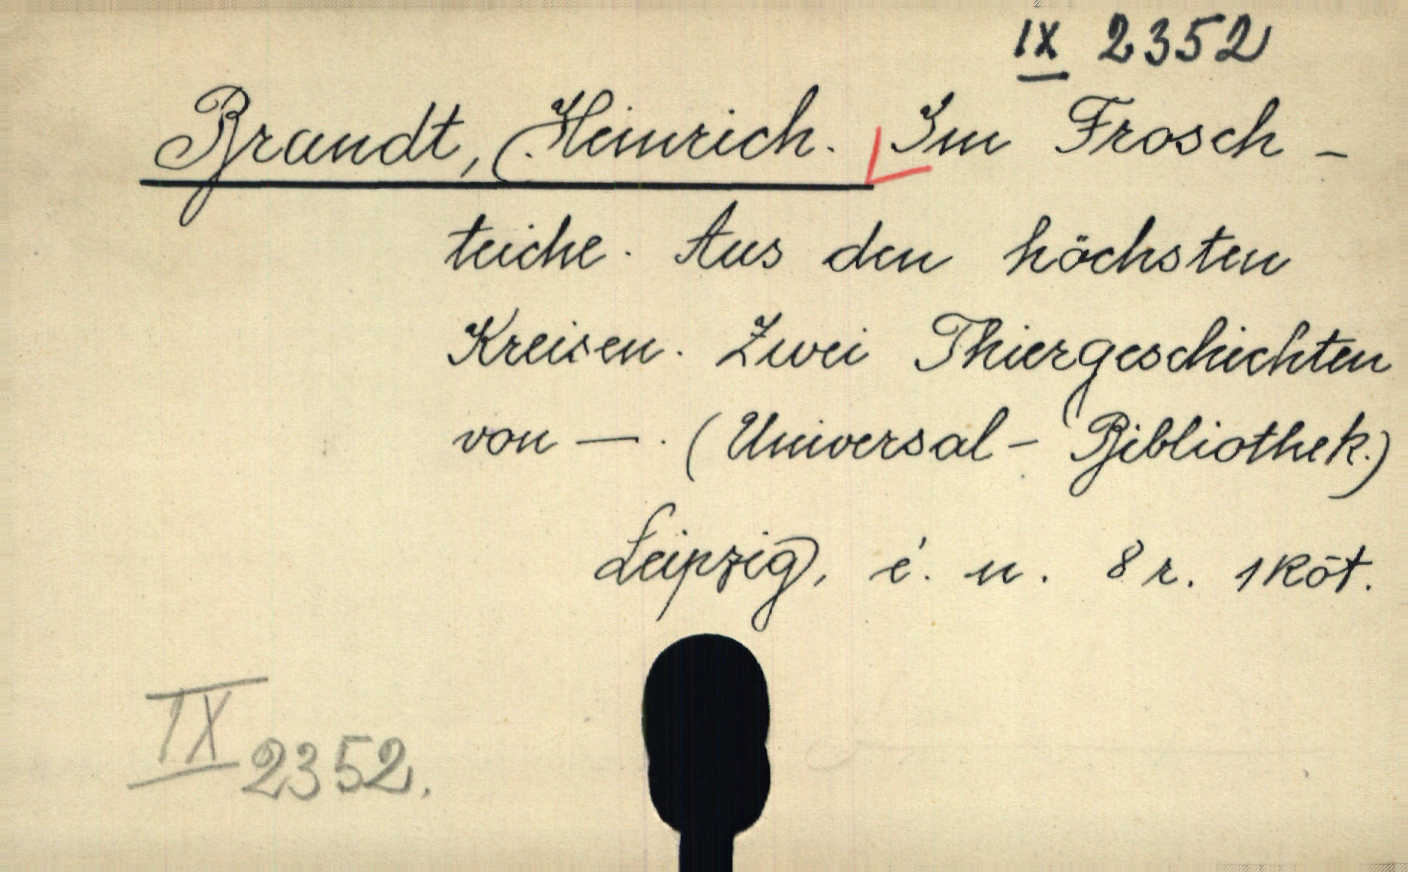 IX 2352
Brandt, Heinrich. Im Frosch-
teiche. Aus den höchsten
Kreisen. Zwei Thiergeschichten
von —. (Universal-Bibliothek.)
Leipzig, é. n. 8 r. 1 köt.
IX 2352.